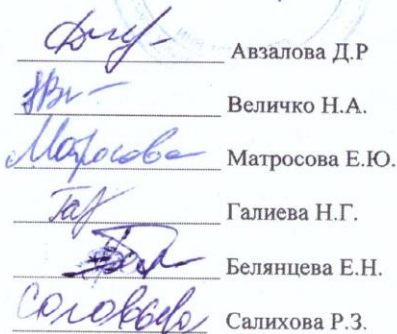 Авзалова Д.Р
Величко Н.А.
Матросова Матросова Е.Ю.
Галиева Н.Г.
Белянцева Е.Н.
Салихова Р.З.